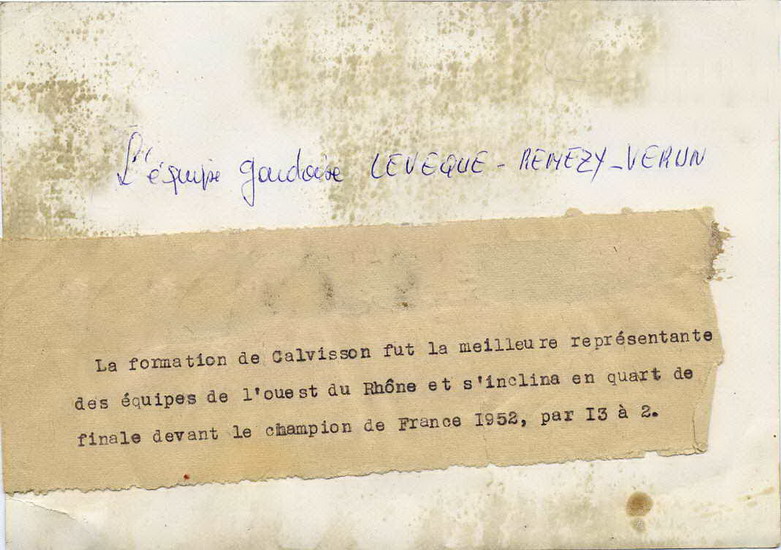 L'équipe gardoise LEVEQUE - REMEZY - VERUN
La formation de Calvisson fut la meilleure représentante
des équipes de l'ouest du Rhône et s'inclina en quart de
finale devant le champion de France I952, par I3 à 2.